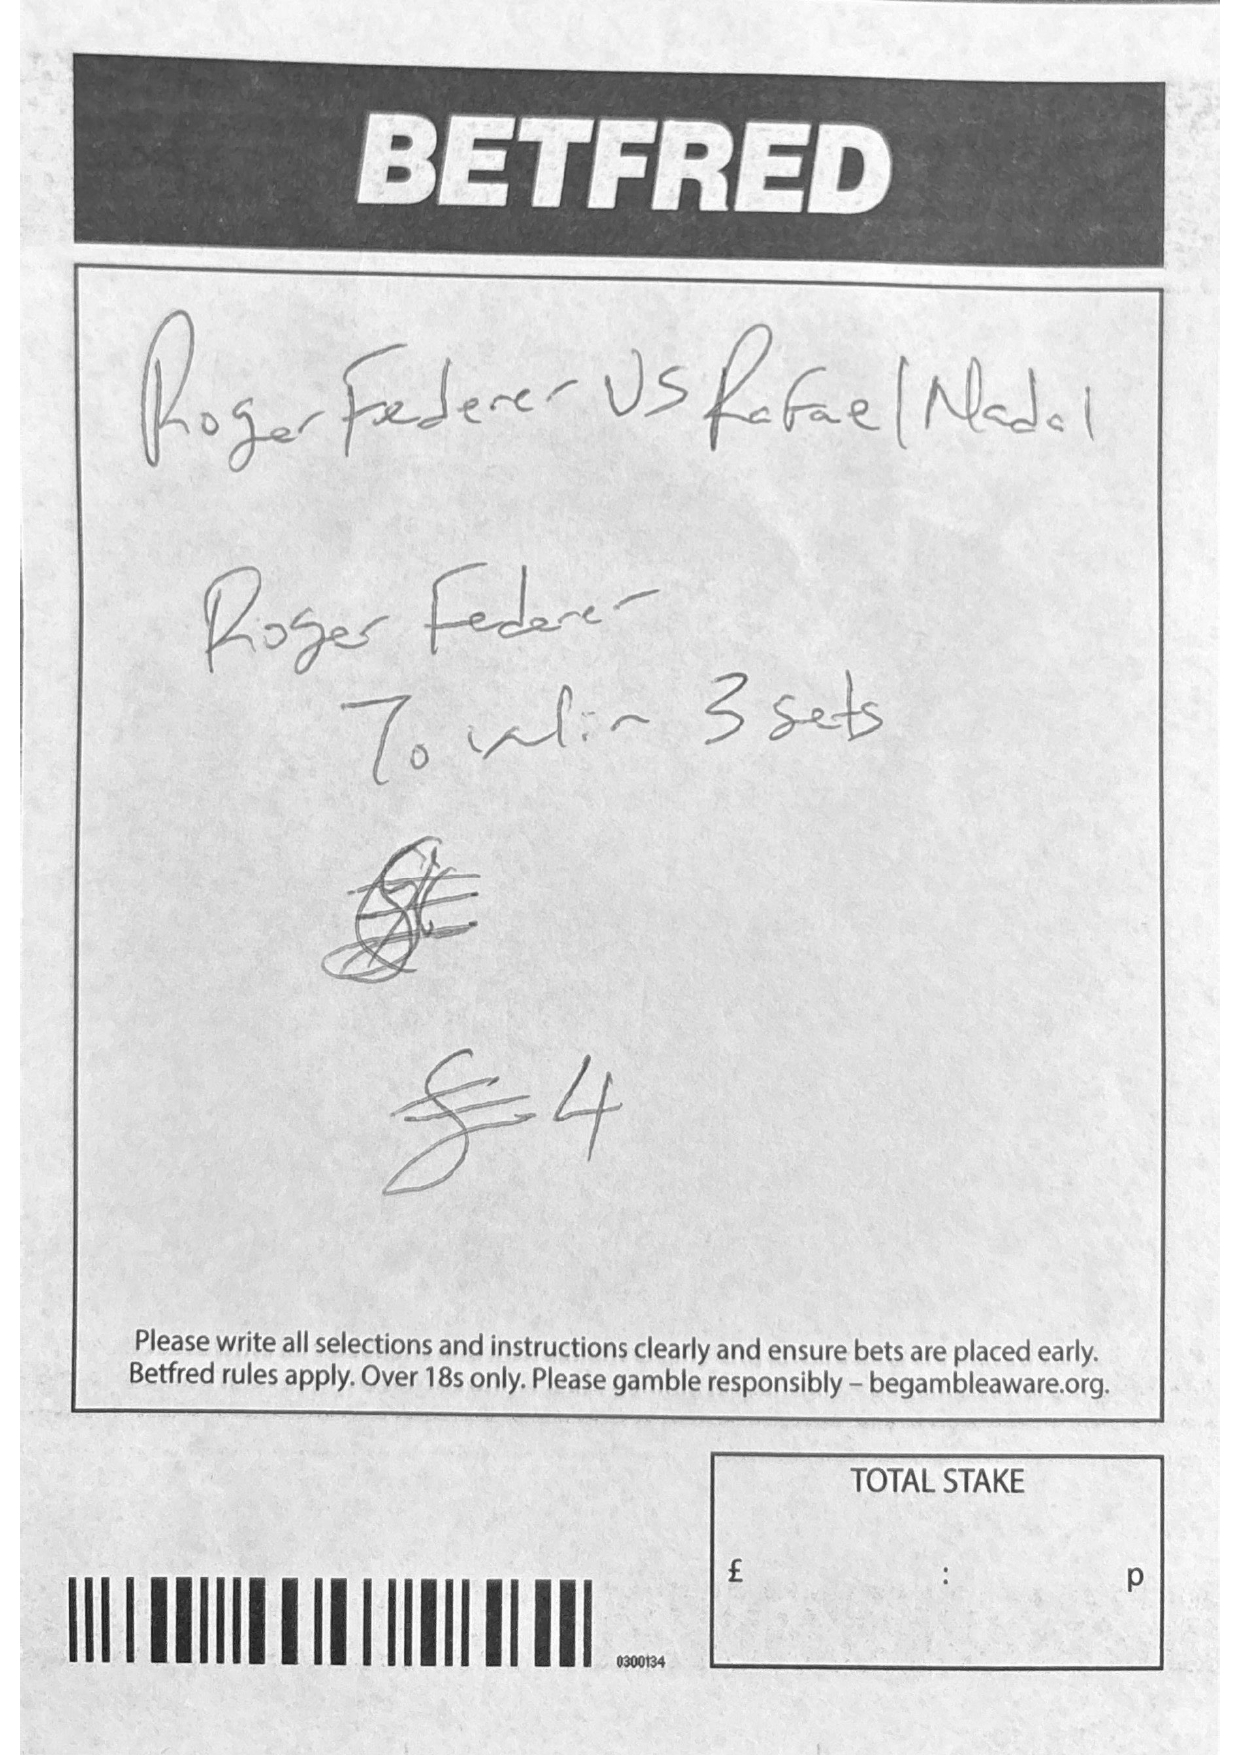 BETFRED
Roger Federer VS Rafael Nadal
Roger Federer
To win 3 sets
£4
Please write all selections and instructions clearly and ensure bets are placed early.
Betfred rules apply. Over 18s only. Please gamble responsibly – begambleaware.org.
TOTAL STAKE
£ : p
0300134